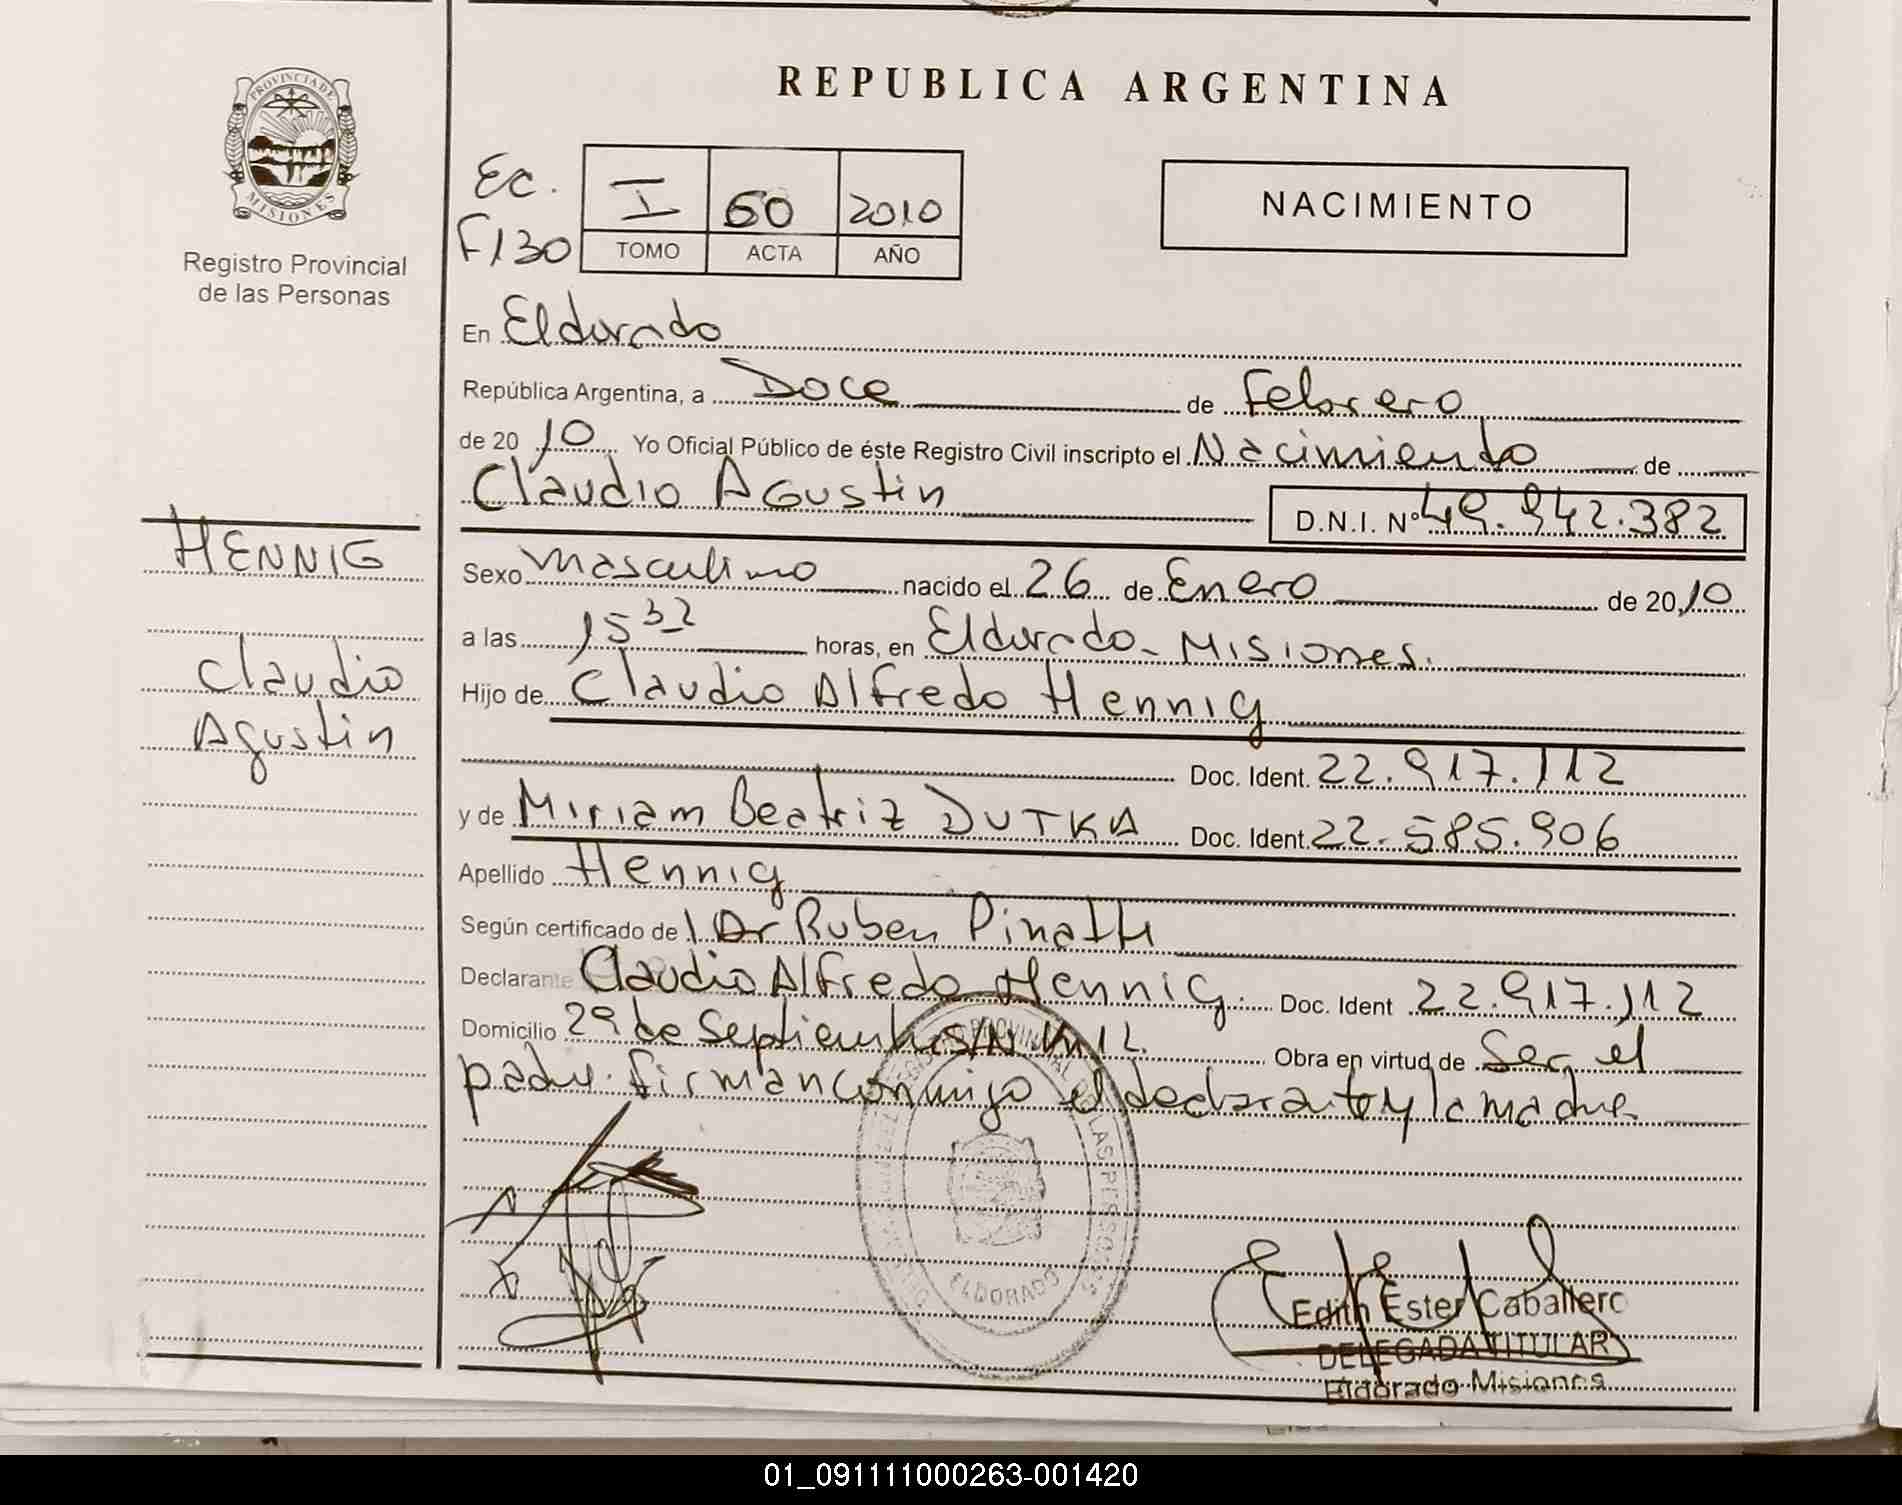 REPUBLICA ARGENTINA
PROVINCIA DE MISIONES
Registro Provincial
de las Personas
Ec.
F130
I 60 2010
TOMO ACTA AÑO
NACIMIENTO
En Eldorado
República Argentina, a Doce de Febrero
de 20 10 Yo Oficial Público de éste Registro Civil inscripto el Nacimiento de
Claudio Agustin D.N.I. Nº 49.942.382
HENNIG
Claudio
Agustin
Sexo masculino nacido el 26 de Enero de 20 10
a las 15 32 horas, en Eldorado - Misiones.
Hijo de Claudio Alfredo Hennig
Doc. Ident. 22.917.112
y de Miriam Beatriz DUTKA Doc. Ident. 22.585.906
Apellido Hennig
Según certificado de Dr Ruben
Declarante Claudio Alfredo Hennig. Doc. Ident 22.917.112
Domicilio 29 de Septiembre S/N Km 12 Obra en virtud de Ser el
padre. firman conmigo el declarante y la madre
ELDORADO
Edith Ester Caballero
DELEGADA TITULAR
Eldorado-Misiones
01_091111000263-001420